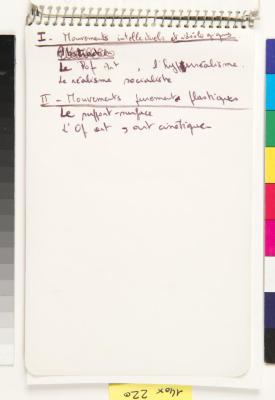 I - Mouvements intellectuels et idéologiques
Le Pop Art, l'hyperréalisme.
Le réalisme socialiste
II - Mouvements purement plastiques
Le support-surface
L'Op art, art cinétique
140x220